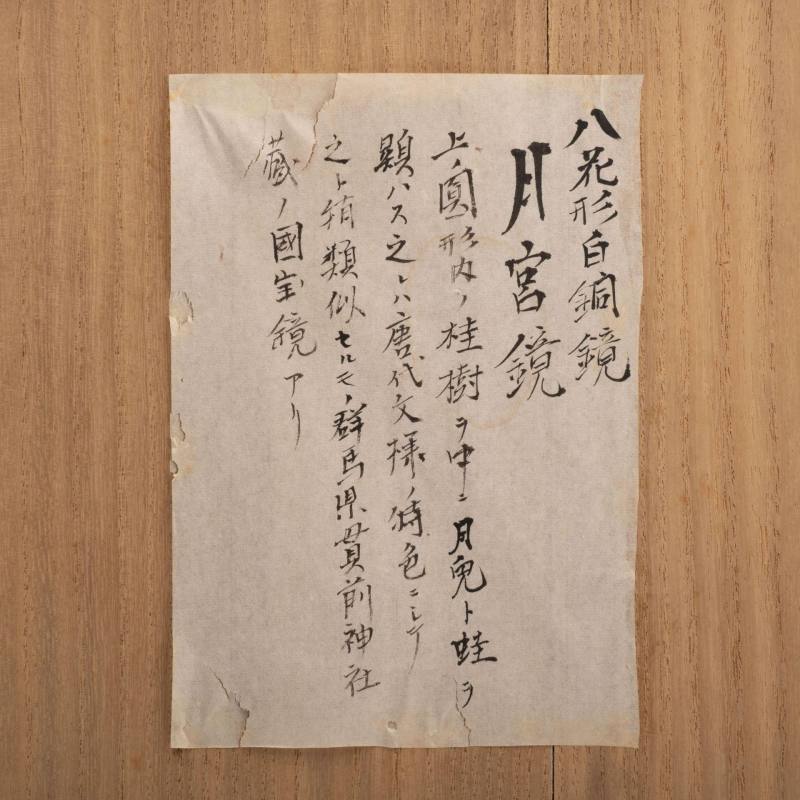 八花形白銅鏡
月宮鏡
上ノ圓形内ノ桂樹ヲ中ニ月兎ト蛙ヲ
顕ハス之レハ唐代文様ノ特色ニシテ
之ト稍類似セルモノ群馬県貫前神社
蔵ノ國宝鏡アリ